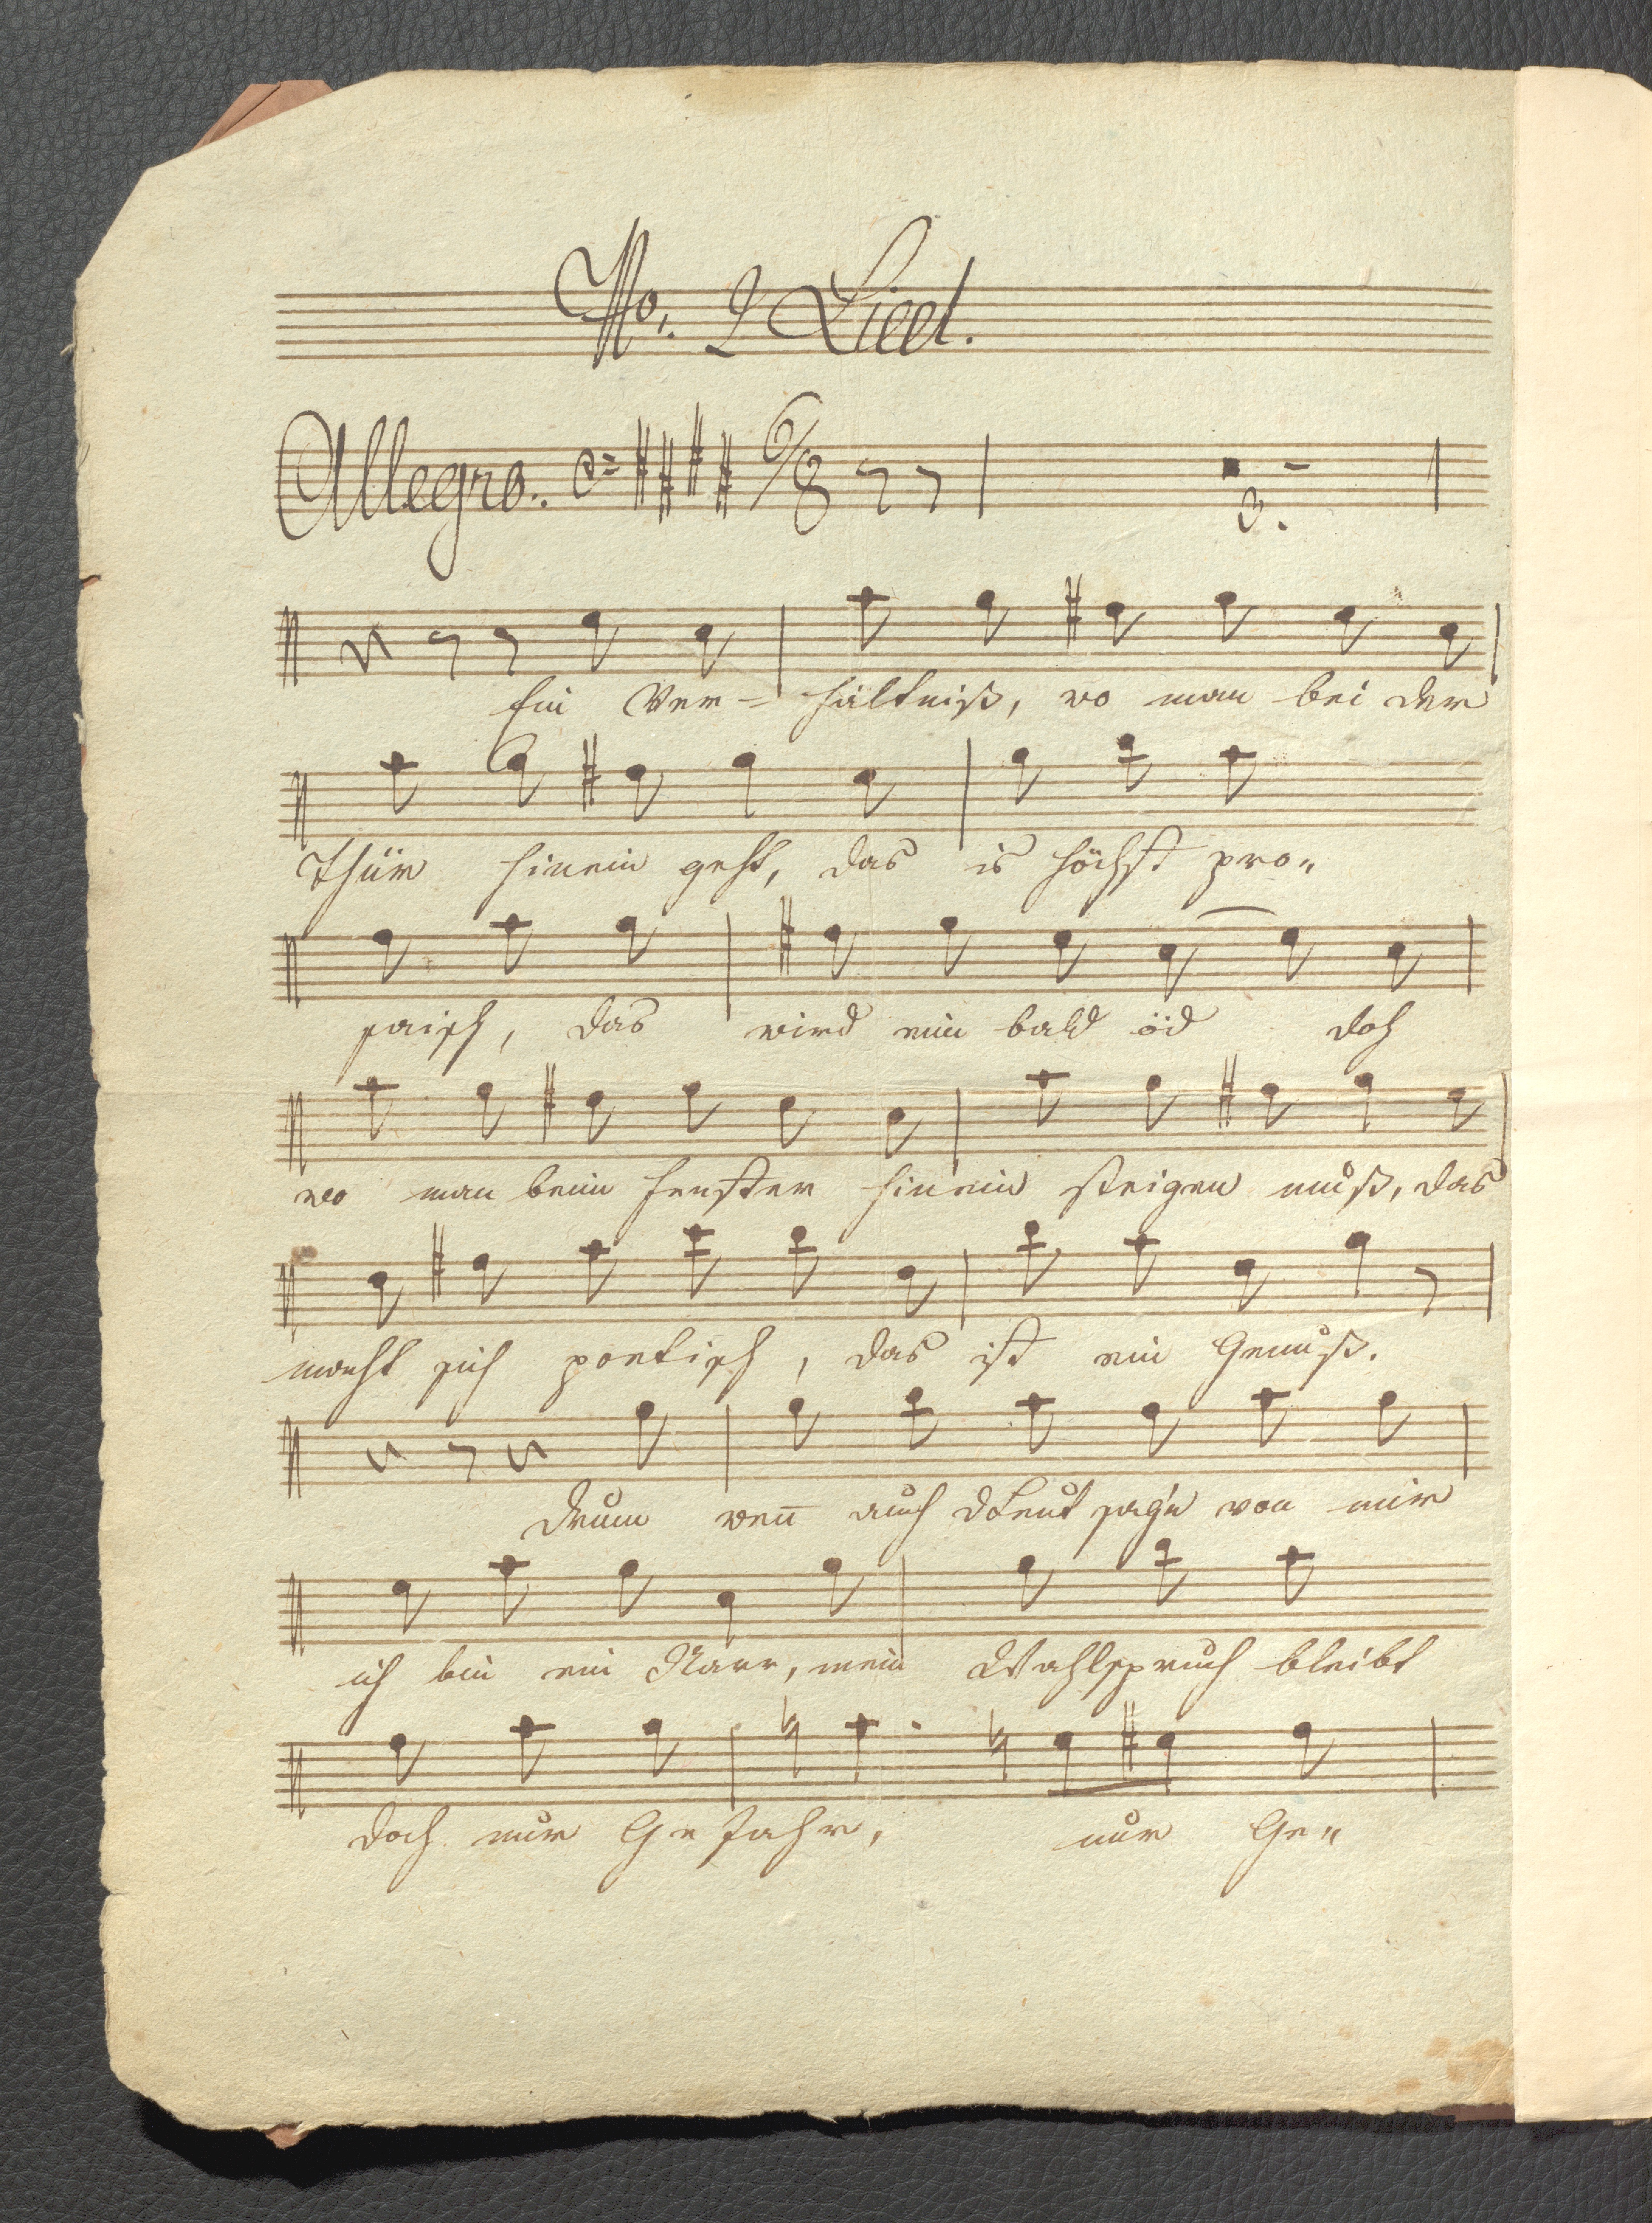 No. 2 Lied.
Allegro. 6/8
3.
Ein Ver= hältniß, wo man bei der
Thür hinein geht, das is höchst pro„
saisch, das wird ein bald öd doch
wo man beim Fenster hinein steigen muß, das
macht sich poetisch, das ist ein Genuß.
Drum wen̅ auch dLeut sag'n von mir
ich bin ein Narr, mein Wahlspruch bleibt
doch nur Gefahr, nur Ge„